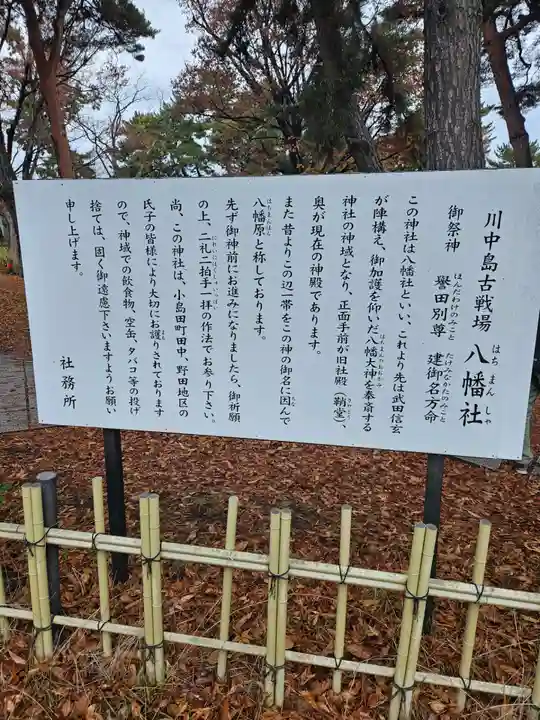 川中島古戦場 八幡社
はち まん しゃ
御祭神 誉田別尊 建御名方命
ほんだわけのみこと たけみなかたのみこと
この神社は八幡社といい、これより先は武田信玄
が陣構え、御加護を仰いだ八幡大神を奉斎する
神社の神域となり、正面手前が旧社殿（鞘堂）、
奥が現在の神殿であります。
また昔よりこの辺一帯をこの神の御名に因んで
八幡原と称しております。
はちまんはら
先ず御神前にお進みになりましたら、御祈願
の上、二礼二拍手一拝の作法でお参り下さい。
尚、この神社は、小島田町田中、野田地区の
氏子の皆様により大切にお護りされております
ので、神域での飲食物、空缶、タバコ等の投げ
捨ては、固く御遠慮下さいますようお願い
申し上げます。
社務所